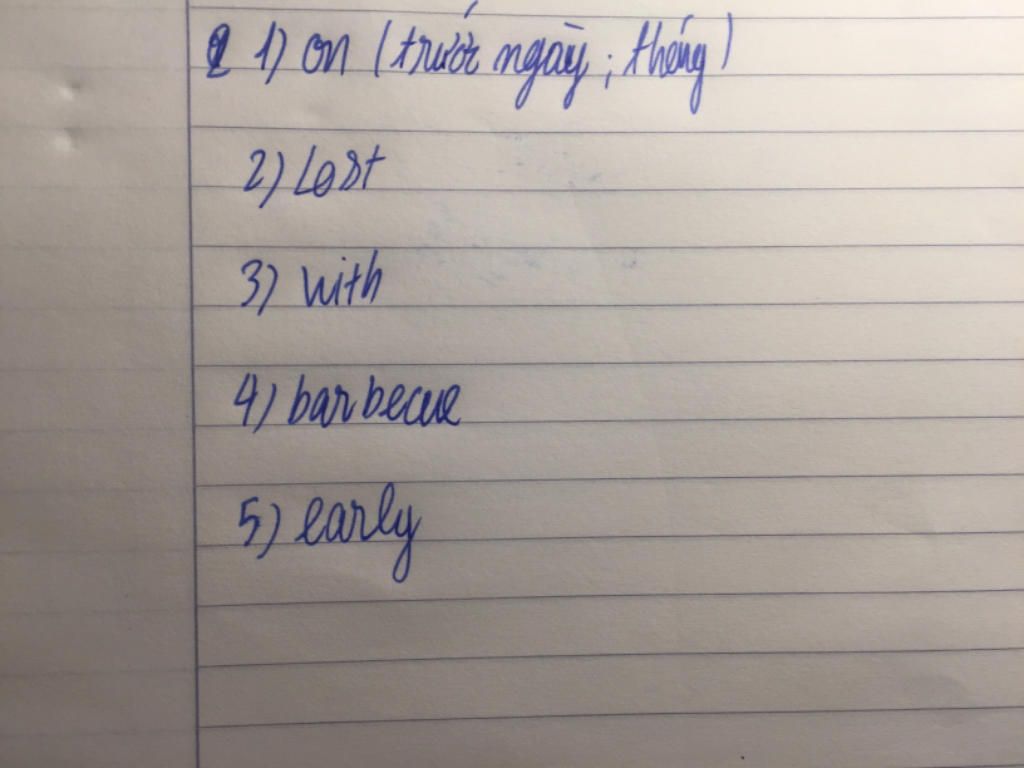 1) on (trước ngày; tháng)
2) Last
3) with
4) barbecue
5) early